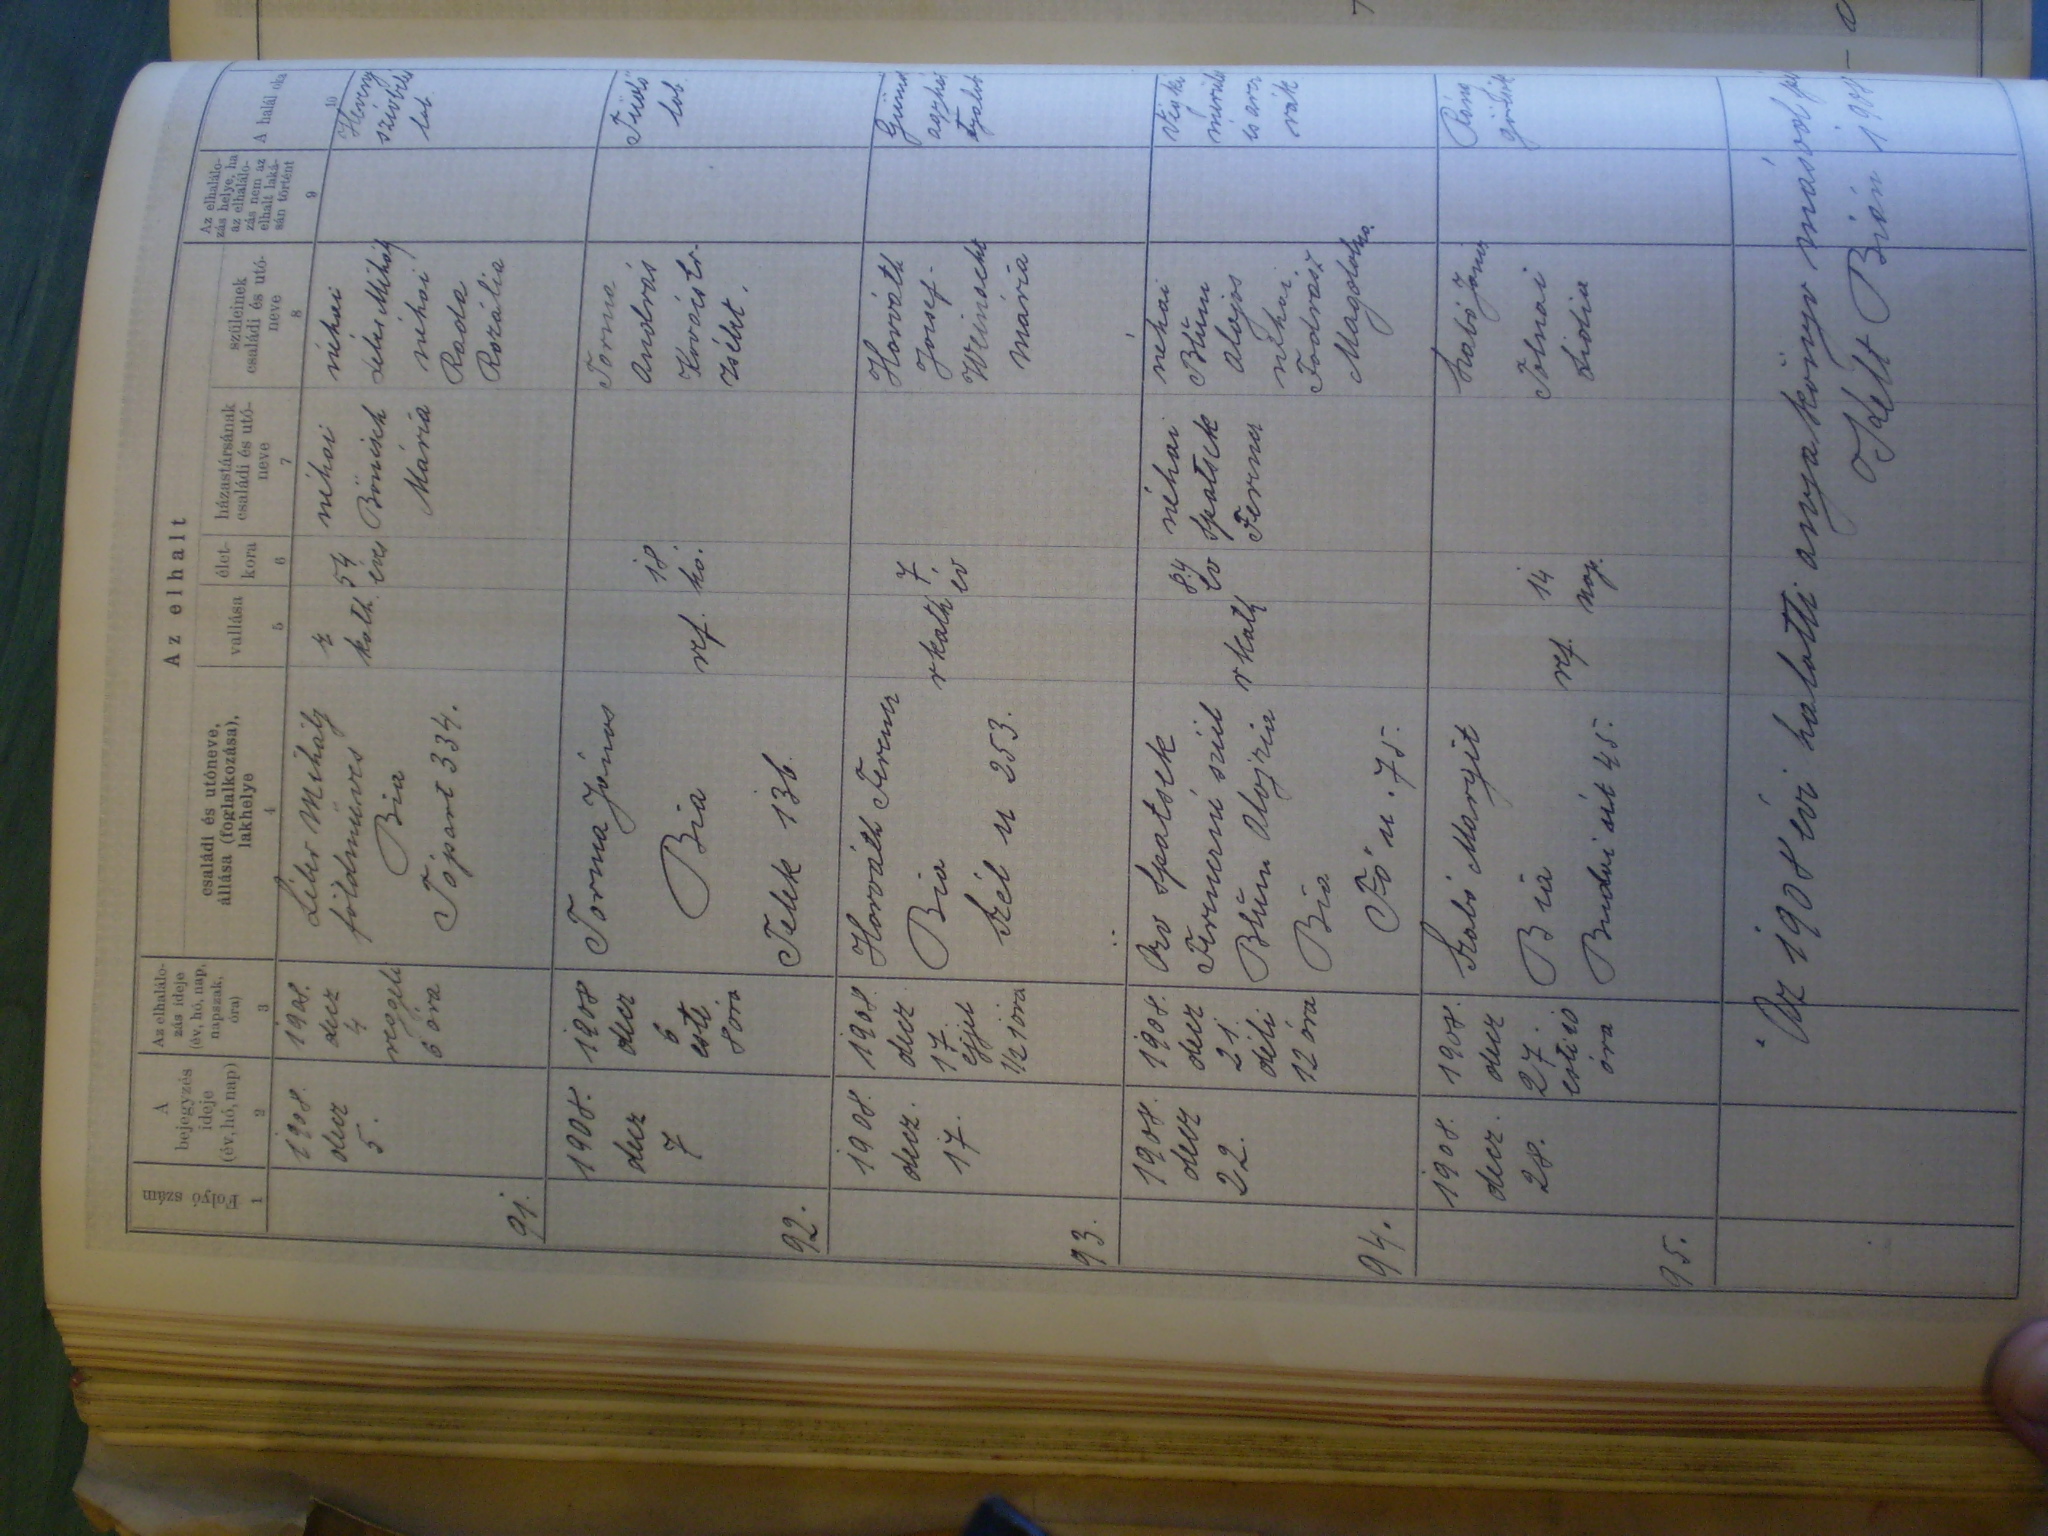 Az elhalt
Folyó szám
A bejegyzés ideje (év, hó, nap)
Az elhalálo-
zás ideje
(év, hó, nap,
napszak,
óra)
családi és utóneve,
állása (foglalkozása),
lakhelye
vallása
élet-
kora
házastársának
családi és utó-
neve
szüleinek
családi és utó-
neve
Az elhalálo-
zás helye, ha
az elhaláló-
zás nem az
elhalt laká-
sán történt
A halál oka
1 2 3 4 5 6 7 8 9 10
91.
1908.
decz
5.
1908.
decz
4
reggeli
6 óra
Léber Mihály
földműves
Bia
Tópart 334.
r
kath.
54
éves
néhai
Bönisch
Mária
néhai
Léber Mihály
néhai
Rada
Rozália
Heveny
szívbéli
lob.
92.
1908.
decz
7
1908
decz
6
esti
8 óra
Torma János
Bia
Telek 136.
ref.
18
hó.
Torma
András
Kovács Er-
zsébet.
Tüdő
lob.
93.
1908.
decz.
17.
1908.
decz.
17.
éjjel
1/2 1 óra
Horváth Ferencz
Bia
Szél u 253.
rkath
7.
év
Horváth
József-
Weinacht
Mária
94.
1908.
decz
22.
1908.
decz
21.
déli
12 óra
Özv Spatsek
Ferencné szül
Blüm Alojzia
Bia
Fő u. 75.
rkath
84
év
néhai
Spatsek
Ferencz
néhai
Blüm
Alojos
néhai
Magdolna.
95.
1908.
decz.
28.
1908.
decz
27.
esti 10
óra
Szabó Margit
Bia
Budai út 45.
ref.
14
nap.
Szabó János
Tolnai
Lidia
Az 1908 évi halotti anyakönyv másod
Kelt Bián 1908